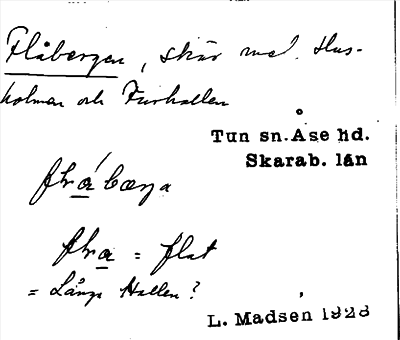 Flåbergen, skär med Hus-
holmen och Furhallen
Tun sn. Åse hd.
Skarab. län
= flat
= Långe Hallen?
L. Madsen 1928